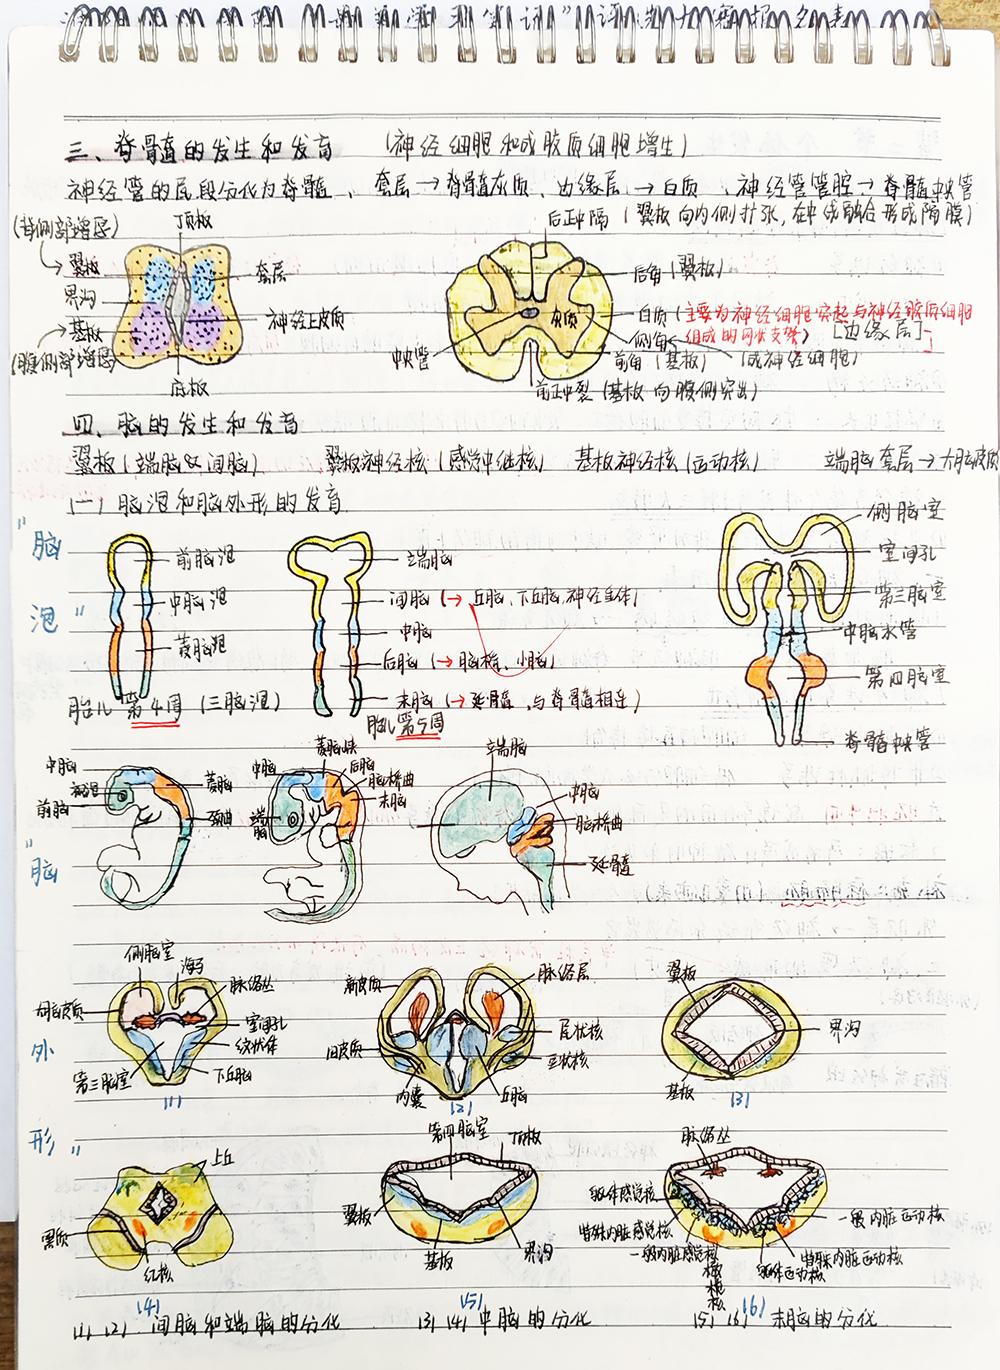 三、脊髓的发生和发育 (神经细胞和成胶质细胞增生)
神经管的尾段分化为脊髓、套层→脊髓灰质、边缘层→白质、神经管管腔→脊髓中央管
(背侧部增厚)
顶板
翼板
套层
界沟
神经上皮质
基板
(腹侧部增厚)
底板
后正中隔 (翼板向内侧扩张,在中线融合形成隔膜)
后角(翼板)
白质(主要为神经细胞突起与神经胶质细胞
组成的网状支架) [边缘层]
灰质
侧角
中央管
前角(基板) (成神经细胞)
前正中裂(基板向腹侧突出)
四、脑的发生和发育
翼板(端脑&间脑) 翼板神经核(感觉中继核) 基板神经核(运动核) 端脑套层→大脑皮质
(一)脑泡和脑外形的发育
"脑
泡"
前脑泡
中脑泡
菱脑泡
胎儿第4周 (三脑泡)
端脑
间脑(→丘脑、下丘脑、神经垂体)
中脑
后脑(→脑桥、小脑)
末脑(→延骨髓、与脊骨髓相连)
胎儿第5周
侧脑室
室间孔
第三脑室
中脑水管
第四脑室
脊髓中央管
"脑
外
形"
中脑
视泡
前脑
菱脑
颈曲
菱脑峡
中脑
后脑
脑桥曲
末脑
端脑
端脑
中脑
脑桥曲
延骨髓
侧脑室
海马
大脑皮质
脉络丛
室间孔
纹状体
第三脑室
下丘脑
(1)
新皮质
脉络层
旧皮质
尾状核
豆状核
内囊
丘脑
(2)
翼板
界沟
基板
(3)
上丘
黑质
红核
(4)
第四脑室
顶板
翼板
基板
界沟
(5)
脉络丛
躯体感觉核
特殊内脏感觉核
一般内脏感觉核
一般内脏运动核
特殊内脏运动核
躯体运动核
(6)
(1) (2) 间脑和端脑的分化 (3) (4) 中脑的分化 (5) (6) 末脑的分化